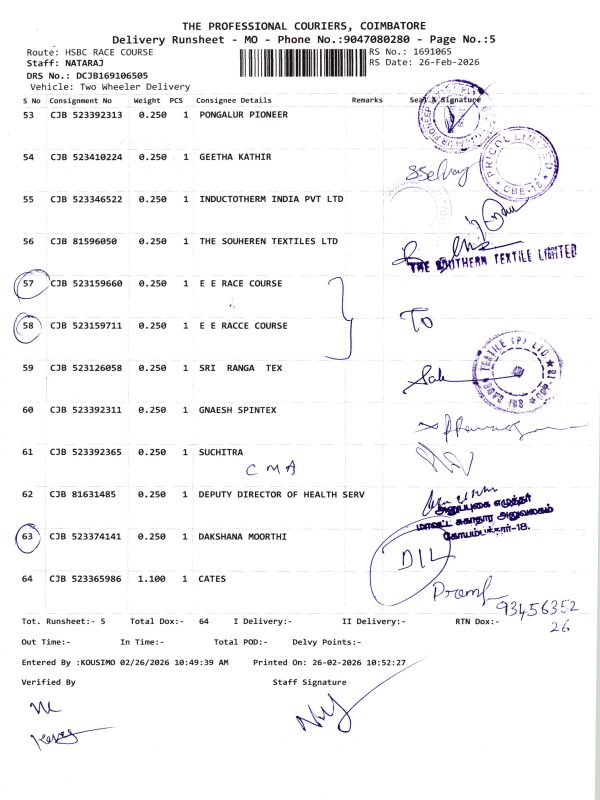 THE PROFESSIONAL COURIERS, COIMBATORE
Delivery Runsheet - MO - Phone No.:9047080280 - Page No.:5
Route: HSBC RACE COURSE RS No.: 1691065
Staff: NATARAJ RS Date: 26-Feb-2026
DRS No.: DCJB169106505
Vehicle: Two Wheeler Delivery
S No Consignment No Weight PCS Consignee Details Remarks Seal & Signature
53 CJB 523392313 0.250 1 PONGALUR PIONEER
54 CJB 523410224 0.250 1 GEETHA KATHIR
PRICOL LIMITED
CBE-18
55 CJB 523346522 0.250 1 INDUCTOTHERM INDIA PVT LTD
56 CJB 81596050 0.250 1 THE SOUHEREN TEXTILES LTD
THE SOUTHERN TEXTILE LIMITED
57 CJB 523159660 0.250 1 E E RACE COURSE
58 CJB 523159711 0.250 1 E E RACCE COURSE TO
59 CJB 523126058 0.250 1 SRI RANGA TEX
60 CJB 523392311 0.250 1 GNAESH SPINTEX
61 CJB 523392365 0.250 1 SUCHITRA
CMA
62 CJB 81631485 0.250 1 DEPUTY DIRECTOR OF HEALTH SERV
மாவட்ட சுகாதார அலுவலகம்
63 CJB 523374141 0.250 1 DAKSHANA MOORTHI
DIL
64 CJB 523365986 1.100 1 CATES
93456352
26
Tot. Runsheet:- 5 Total Dox:- 64 I Delivery:- II Delivery:- RTN Dox:-
Out Time:- In Time:- Total POD:- Delvy Points:-
Entered By :KOUSIMO 02/26/2026 10:49:39 AM Printed On: 26-02-2026 10:52:27
Verified By Staff Signature